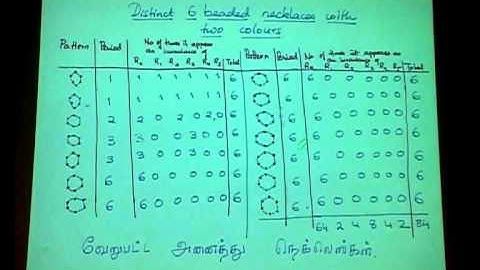 Distinct 6 beaded necklaces with
two colours
Pattern Period No of times it appears as an invariance of Total Pattern Period No of times it appears as an invariance of Total
R₀ R₁ R₂ R₃ R₄ R₅ R₀ R₁ R₂ R₃ R₄ R₅
1 1 1 1 1 1 1 6 6 6 0 0 0 0 0 6
1 1 1 1 1 1 1 6 6 6 0 0 0 0 0 6
2 2 0 2 0 2 0 6 6 6 0 0 0 0 0 6
3 3 0 0 3 0 0 6 6 6 0 0 0 0 0 6
3 3 0 0 3 0 0 6 6 6 0 0 0 0 0 6
6 6 0 0 0 0 0 6 6 6 0 0 0 0 0 6
6 6 0 0 0 0 0 6 6 6 0 0 0 0 0 6
64 2 4 8 4 2 84
வேறுபட்ட அனைத்து நெக்லெஸ்கள்.